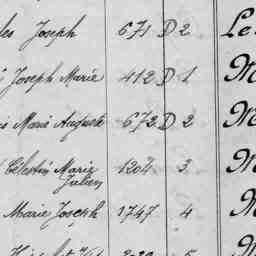 les Joseph 671 D 2 Le
Joseph Marie 412 D 1 M
is Marie Auguste 672 D 2 M
Célestin Marie 1204 3 M
Julien
Marie Joseph 1747 4 M
5 M